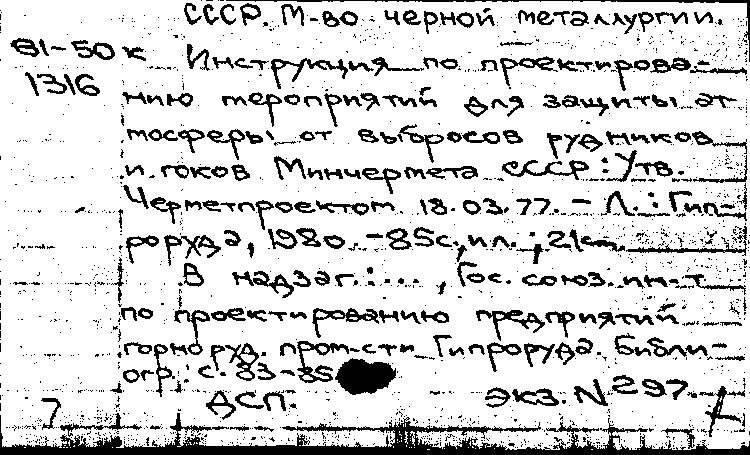 СССР. М-во черной металлургии.
81-50к Инструкция по проектирова-
1316 нию мероприятий для защиты ат
мосферы от выбросов рудников
и гоков Минчермета СССР : Утв.
Черметпроектом 18.03.77. - Л. : Гип-
роруда, 1980. - 85с., ил. ; 21см.
В надзаг.: ... , Гос. союз. ин-т
по проектированию предприятий
горноруд. пром-сти Гипроруда. Библи-
огр.: с. 83-85
7 ДСП. экз. N 297.